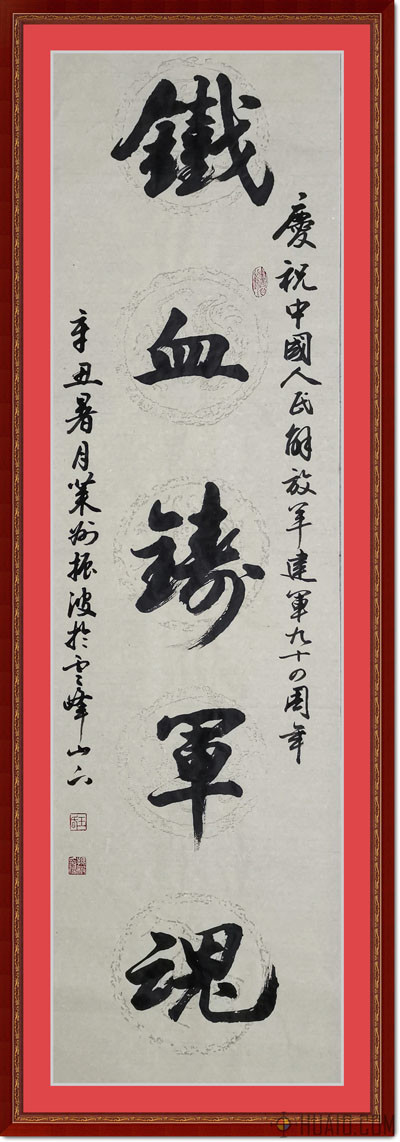 慶祝中國人民解放军建軍九十四周年
鐵血鑄軍魂
辛丑暑月萊州振波於雲峰山下